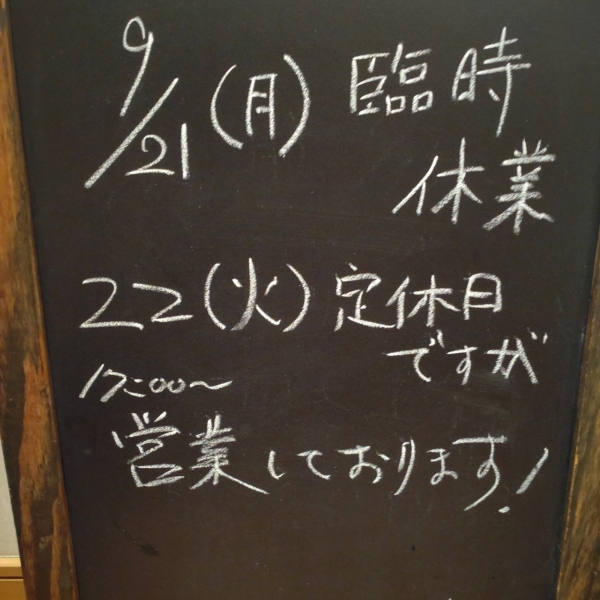 9/21(月) 臨時
休業
22(火) 定休日
ですが
17:00～
営業しております!